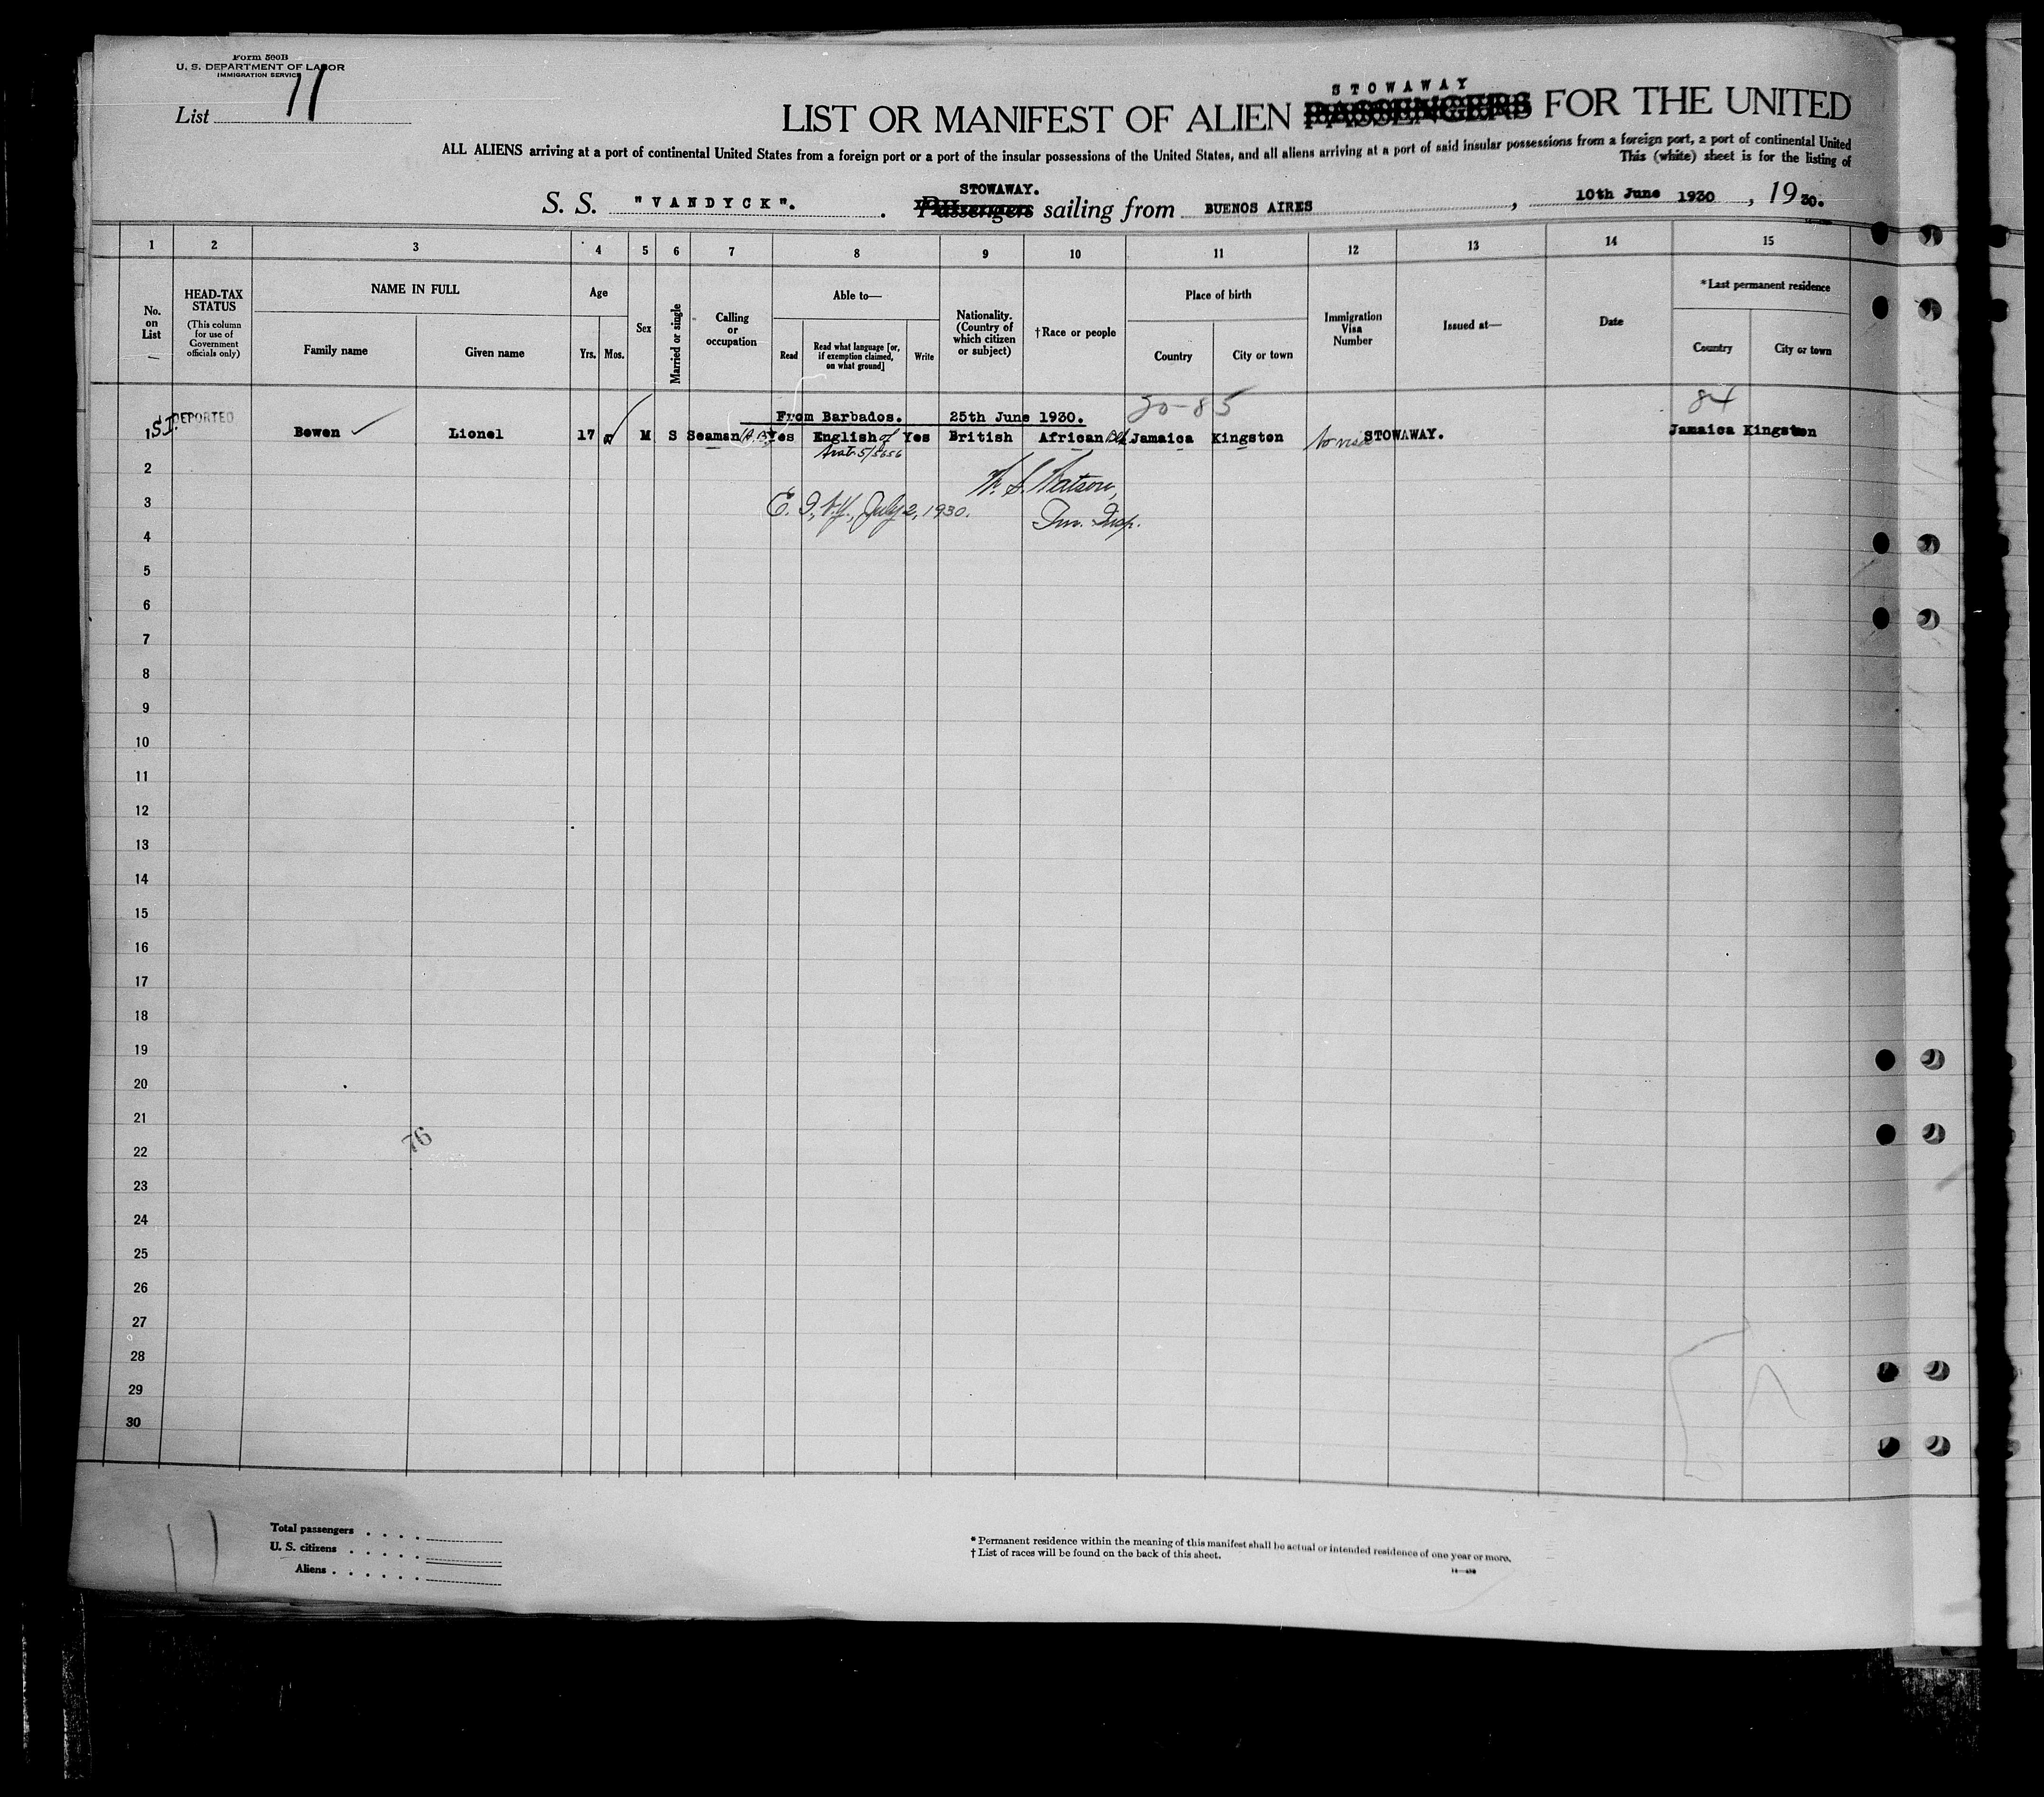 Form 500B
U. S. DEPARTMENT OF LABOR
IMMIGRATION SERVICE
List 11
STOWAWAY
LIST OR MANIFEST OF ALIEN PASSENGERS FOR THE UNITED
ALL ALIENS arriving at a port of continental United States from a foreign port or a port of the insular possessions of the United States, and all aliens arriving at a port of said insular possessions from a foreign port, a port of continental United
This (white) sheet is for the listing of
STOWAWAY.
S. S. "VANDYCK". Passengers sailing from BUENOS AIRES, 10th June 1930, 1930.
1 2 3 4 5 6 7 8 9 10 11 12 13 14 15
No. on List
HEAD-TAX STATUS
(This column for use of Government officials only)
NAME IN FULL
Family name
Given name
Age
Yrs.
Mos.
Sex
Married or single
Calling or occupation
Able to—
Read
Read what language [or, if exemption claimed, on what ground]
Write
Nationality. (Country of which citizen or subject)
†Race or people
Place of birth
Country
City or town
Immigration Visa Number
Issued at—
Date
*Last permanent residence
Country
City or town
From Barbados. 25th June 1930. 84
1 S.I. DEPORTED Bowen Lionel 17 M S Seaman Yes English Yes British African Blk Jamaica Kingston STOWAWAY. Jamaica Kingston
2
W. S. Watson,
3
E. I., N.Y., July 2, 1930.
Im. Insp.
4
5
6
7
8
9
10
11
12
13
14
15
16
17
18
19
20
21
76
22
23
24
25
26
27
28
29
30
Total passengers
U. S. citizens
Aliens
* Permanent residence within the meaning of this manifest shall be actual or intended residence of one year or more.
† List of races will be found on the back of this sheet.